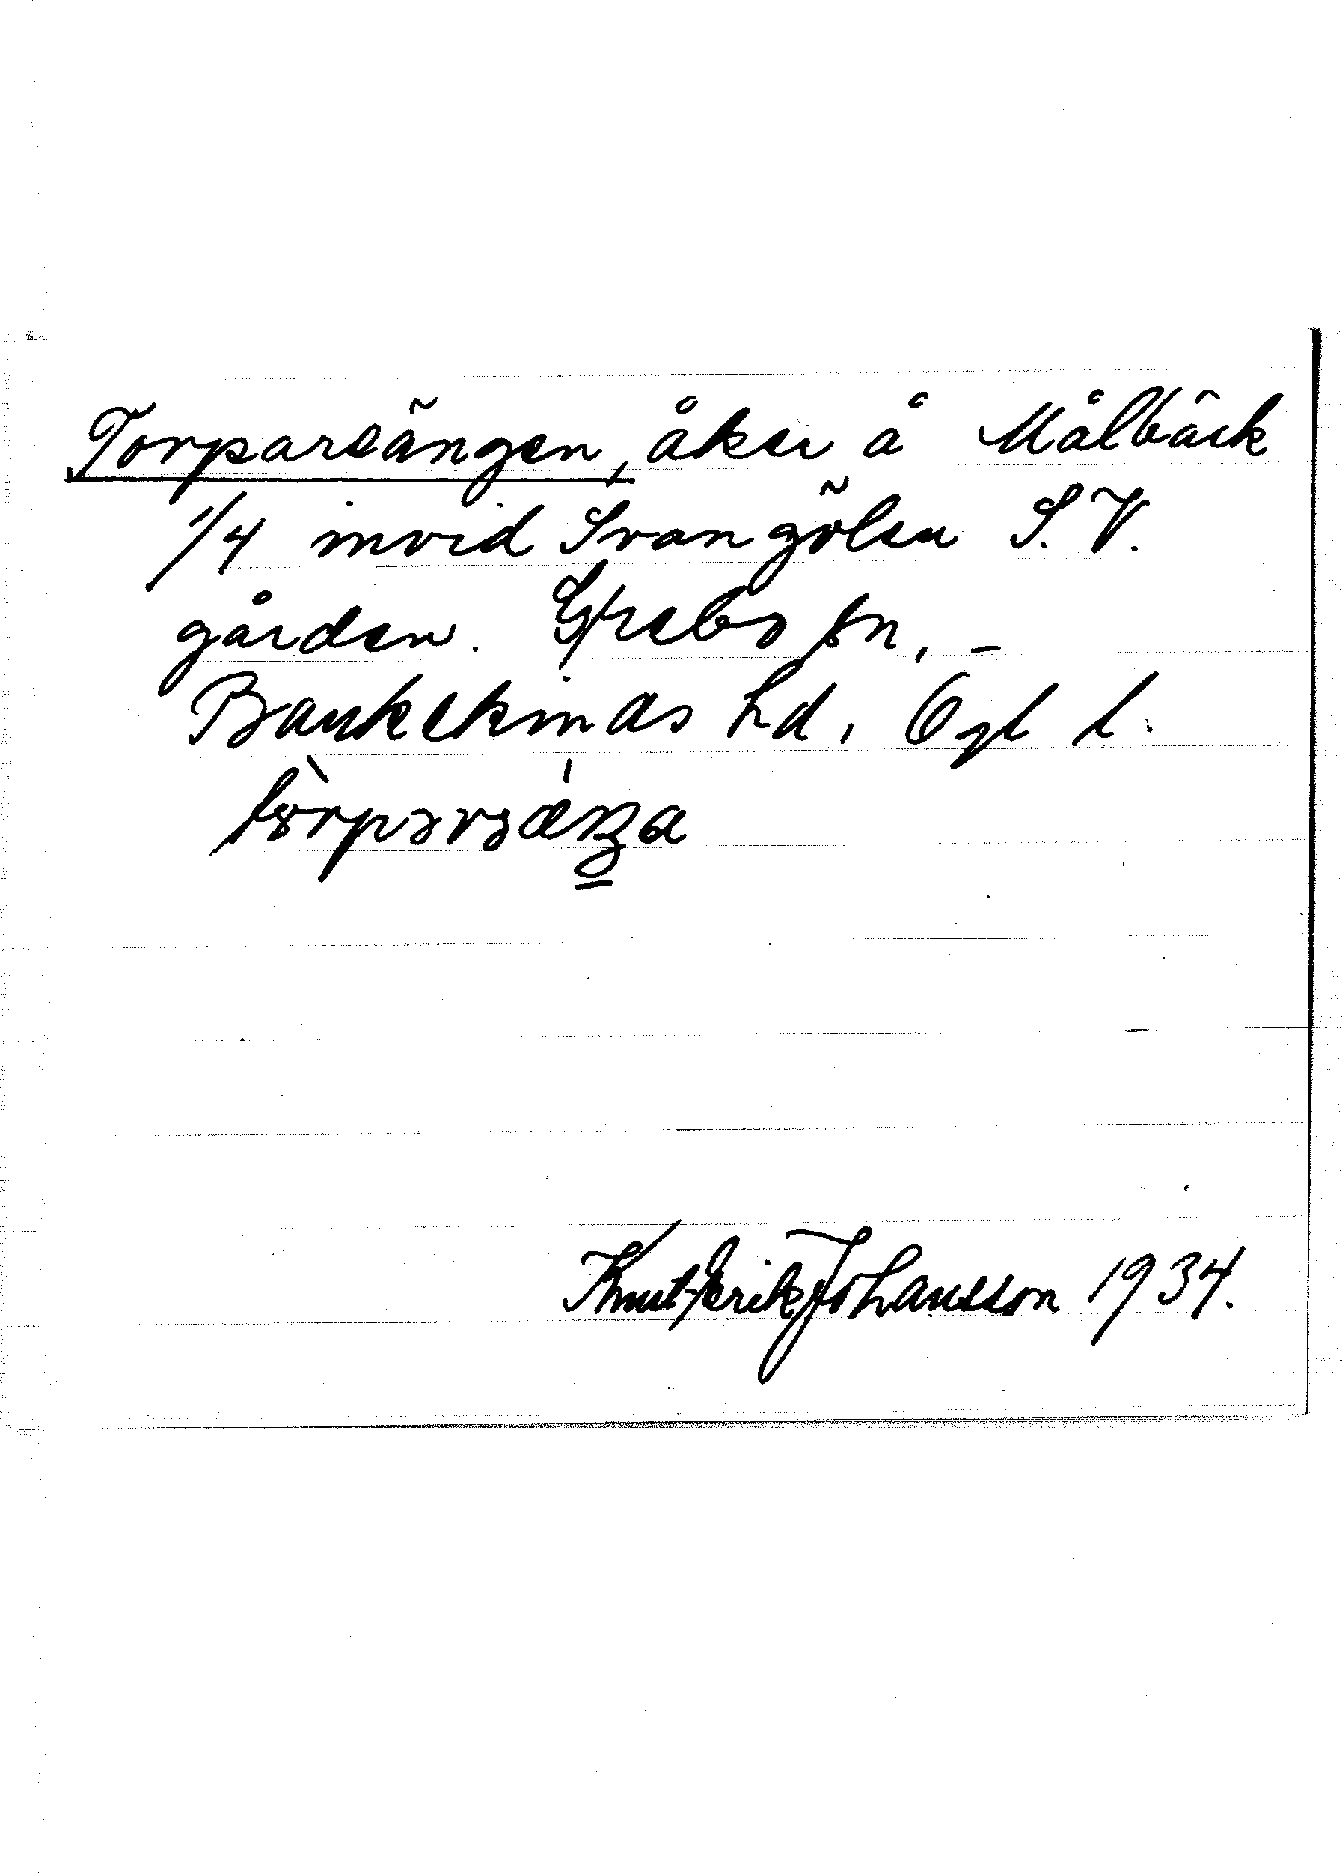 Torparsängen, åker å Målbäck
1/4 invid Svangölen S.V.
gården. Grebo sn, -
Bankekinds hd, Ögl l.
tòrparsä́ŋa
Knut-Erik Johansson 1934.